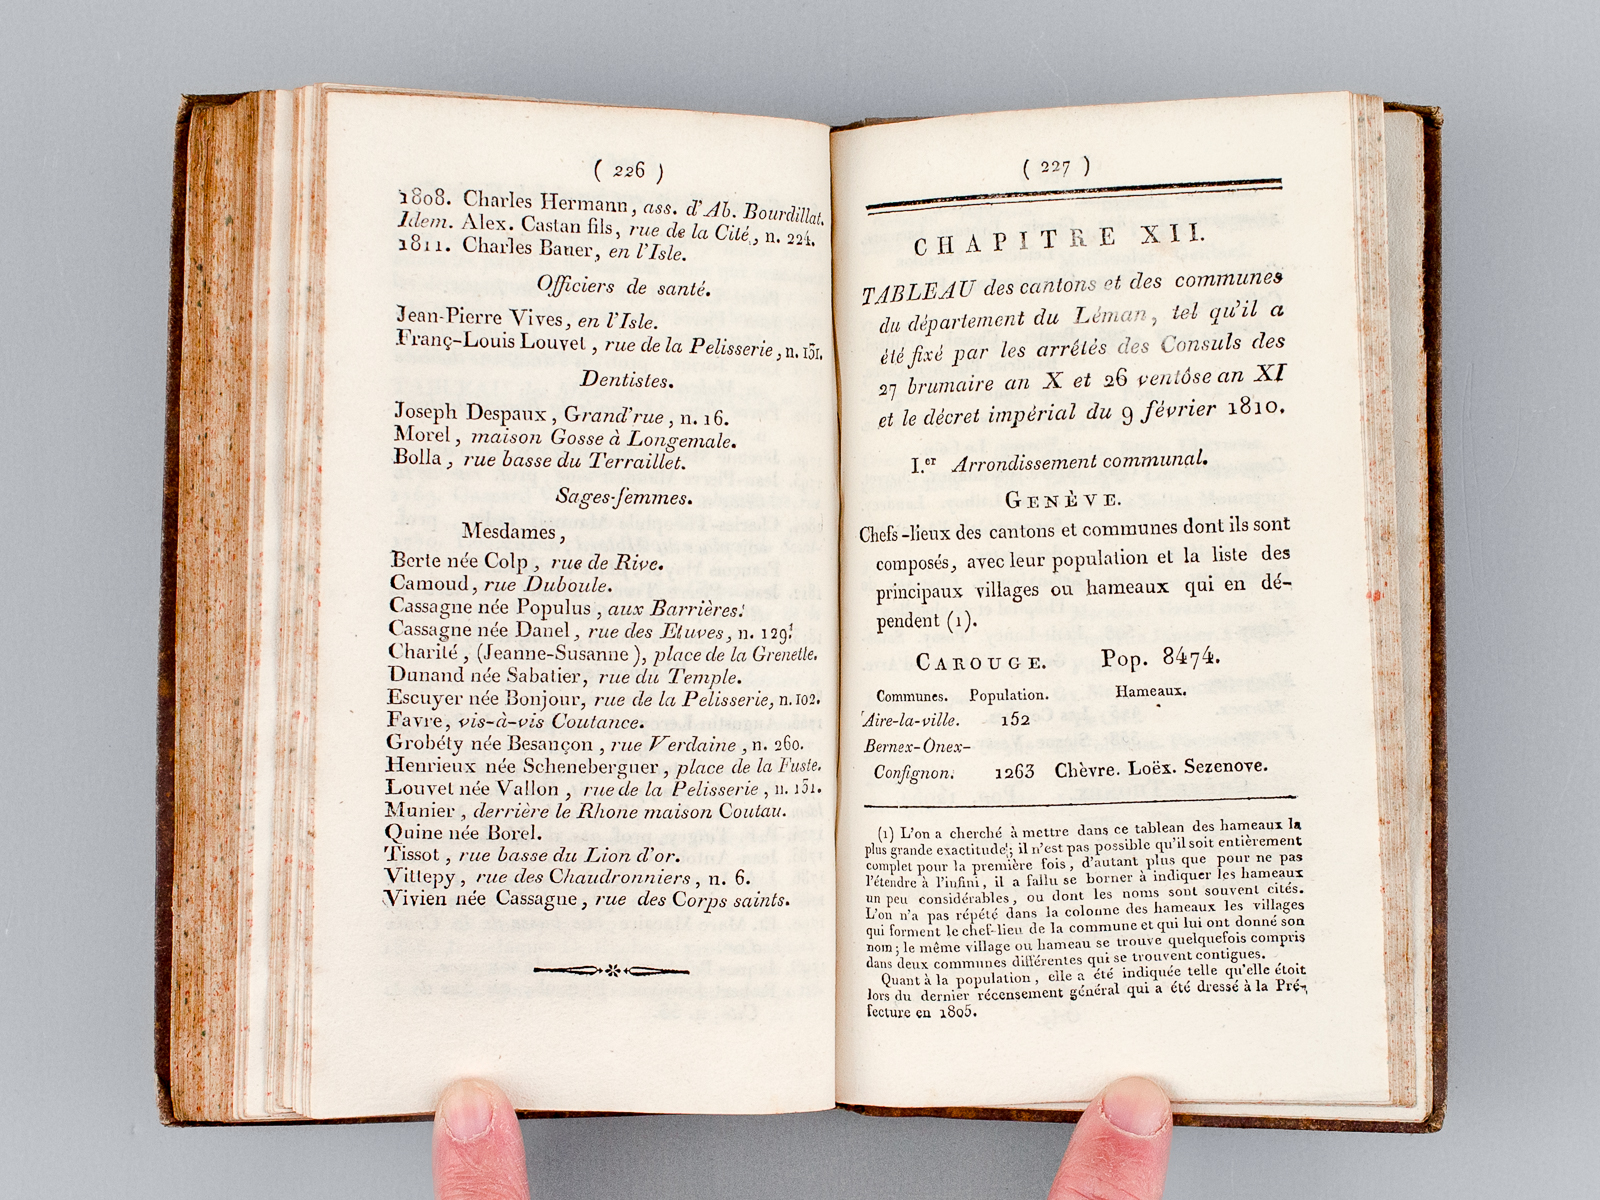 ( 226 )
1808. Charles Hermann, ass. d'Ab. Bourdillat.
Idem. Alex. Castan fils, rue de la Cité, n. 224.
1811. Charles Bauer, en l'Isle.
Officiers de santé.
Jean-Pierre Vives, en l'Isle.
Franç-Louis Louvet, rue de la Pelisserie, n. 151.
Dentistes.
Joseph Despaux, Grand'rue, n. 16.
Morel, maison Gosse à Longemale.
Bolla, rue basse du Terraillet.
Sages-femmes.
Mesdames,
Berte née Colp, rue de Rive.
Camoud, rue Duboule.
Cassagne née Populus, aux Barrières.
Cassagne née Danel, rue des Etuves, n. 129.
Charité, (Jeanne-Susanne), place de la Grenette.
Dunand née Sabatier, rue du Temple.
Escuyer née Bonjour, rue de la Pelisserie, n. 102.
Favre, vis-à-vis Coutance.
Grobéty née Besançon, rue Verdaine, n. 260.
Henrieux née Scheneberguer, place de la Fuste.
Louvet née Vallon, rue de la Pelisserie, n. 151.
Munier, derrière le Rhone maison Coutau.
Quine née Borel.
Tissot, rue basse du Lion d'or.
Vittepy, rue des Chaudronniers, n. 6.
Vivien née Cassagne, rue des Corps saints.
( 227 )
CHAPITRE XII.
TABLEAU des cantons et des communes
du département du Léman, tel qu'il a
été fixé par les arrêtés des Consuls des
27 brumaire an X et 26 ventôse an XI
et le décret impérial du 9 février 1810.
I.er Arrondissement communal.
GENÈVE.
Chefs-lieux des cantons et communes dont ils sont
composés, avec leur population et la liste des
principaux villages ou hameaux qui en dé-
pendent (1).
CAROUGE. Pop. 8474.
Communes. Population. Hameaux.
Aire-la-ville. 152
Bernex-Onex-
Confignon. 1263 Chèvre. Loëx. Sezenove.
(1) L'on a cherché à mettre dans ce tableau des hameaux la
plus grande exactitude; il n'est pas possible qu'il soit entièrement
complet pour la première fois, d'autant plus que pour ne pas
l'étendre à l'infini, il a fallu se borner à indiquer les hameaux
un peu considérables, ou dont les noms sont souvent cités.
L'on n'a pas répété dans la colonne des hameaux les villages
qui forment le chef-lieu de la commune et qui lui ont donné son
nom; le même village ou hameau se trouve quelquefois compris
dans deux communes différentes qui se trouvent contigues.
Quant à la population, elle a été indiquée telle qu'elle étoit
lors du dernier récensement général qui a été dressé à la Pré-
fecture en 1805.